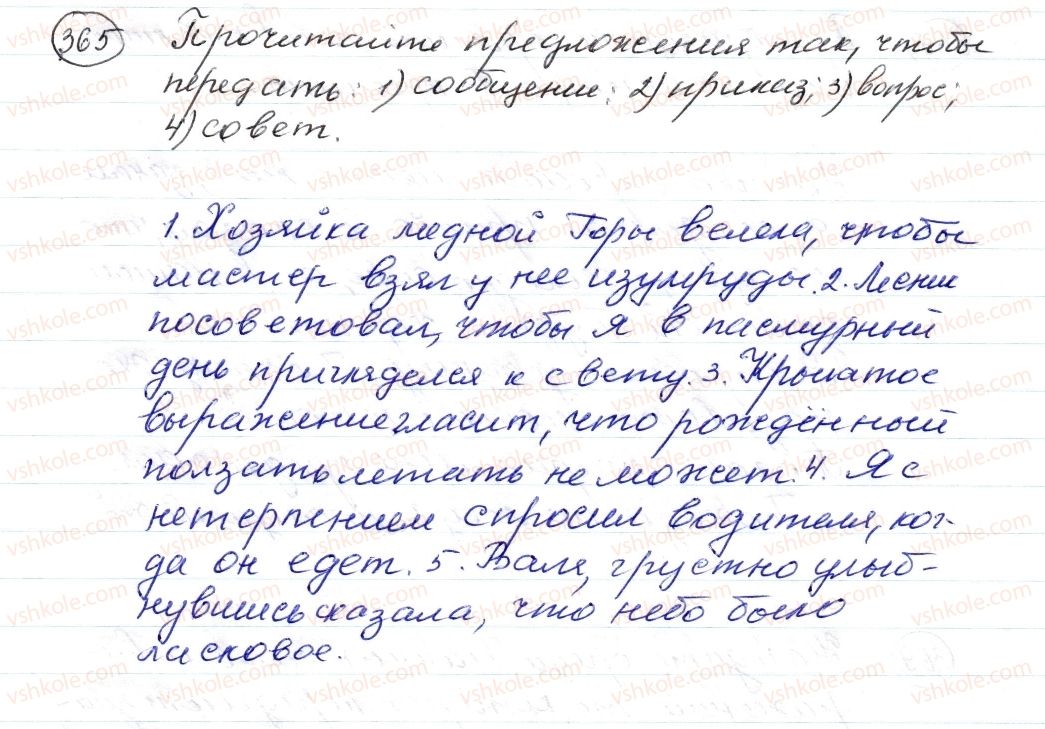 365 Прочитайте предложения так, чтобы
передать: 1) сообщение; 2) приказ; 3) вопрос;
4) совет.
1. Хозяйка медной Горы велела, чтобы
мастер взял у нее изумруды. 2. Лесник
посоветовал, чтобы я в пасмурный
день пригляделся к свету. 3. Крылатое
выражение гласит, что рождённый
ползать летать не может. 4. Я с
нетерпением спросил водителя, ког-
да он едет. 5. Валя, грустно улыб-
нувшись сказала, что небо было
ласковое.